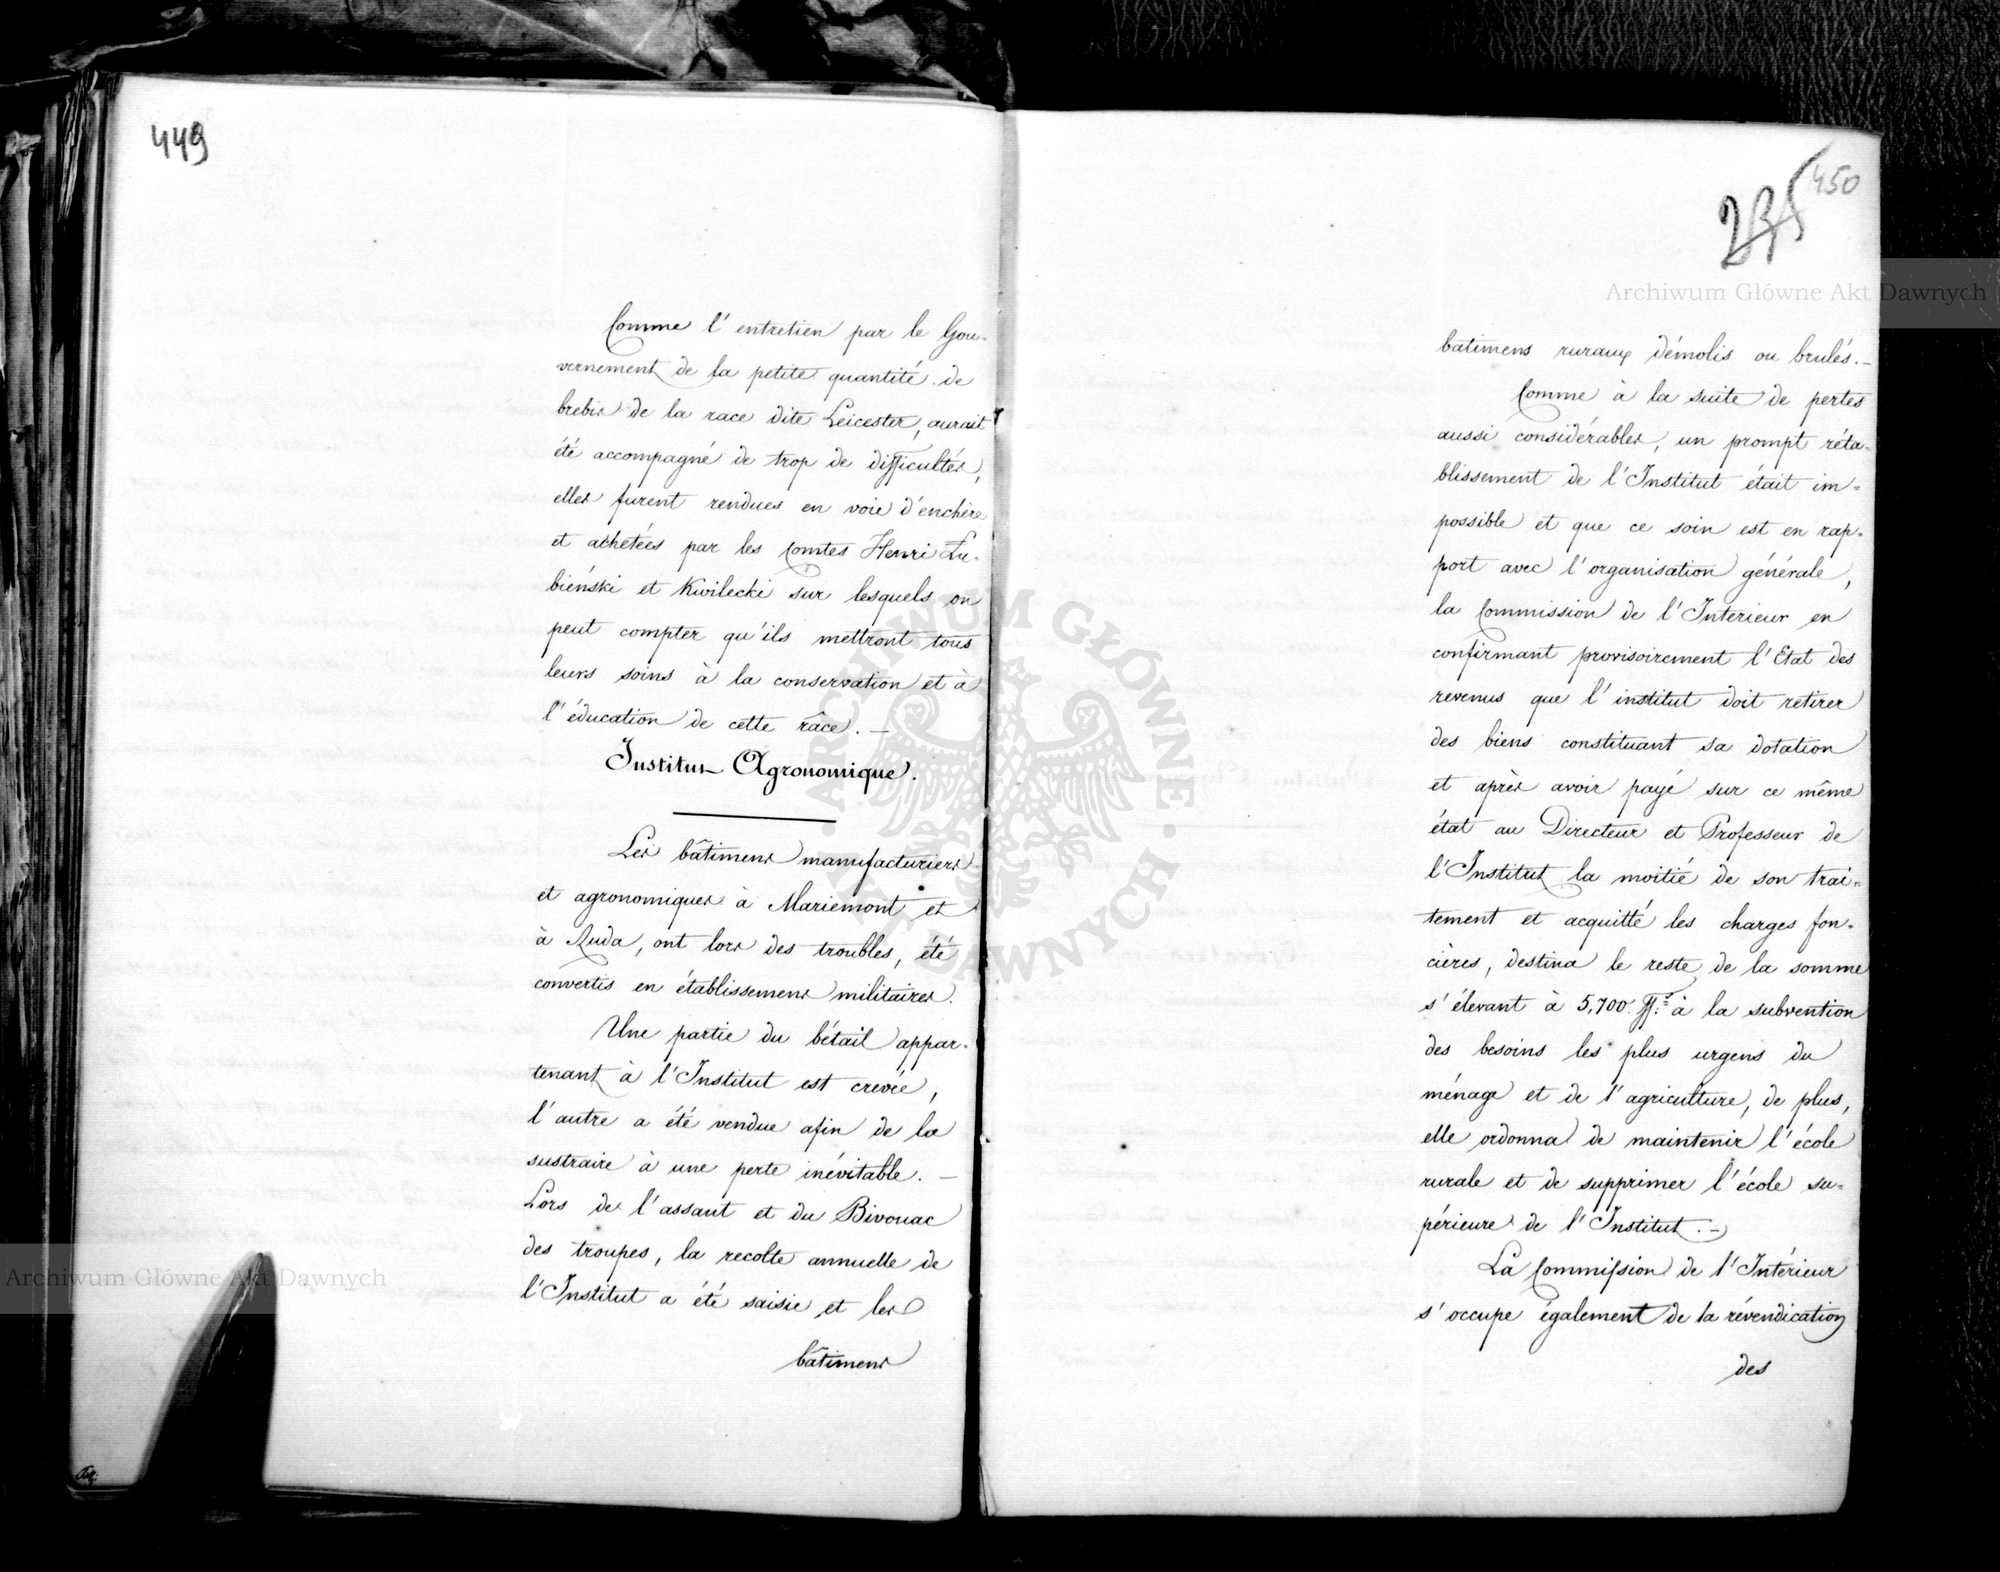 449
Comme l'entretien par le Gou-
vernement de la petite quantité de
brebis de la race dite Leicester, aurait
été accompagné de trop de difficultés,
elles furent rendues en voie d'enchère
et achetées par les Comtes Henri Łu-
bieński et Kwilecki sur lesquels on
peut compter qu'ils mettront tous
leurs soins à la conservation et à
l'éducation de cette râce. —
Institut Agronomique.
Les bâtimens manufacturiers
et agronomiques à Mariemont et
à Ruda, ont lors des troubles, été
convertis en établissemens militaires.
Une partie du bétail appar-
tenant à l'Institut est crevée,
l'autre a été vendue afin de la
sustraire à une perte inévitable. —
Lors de l'assaut et du Bivouac
des troupes, la recolte annuelle de
l'Institut a été saisie et les
bâtimens
450
235
batimens ruraux démolis ou brulés. —
Comme à la suite de pertes
aussi considérables, un prompt réta-
blissement de l'Institut était im=
possible et que ce soin est en rap-
port avec l'organisation générale,
la Commission de l'Interieur en
confirmant provisoirement l'Etat des
revenus que l'institut doit retirer
des biens constituant sa dotation
et après avoir payé sur ce même
état au Directeur et Professeur de
l'Institut la moitié de son trai=
tement et acquitté les charges fon-
cières, destina le reste de la somme
s'élevant à 5,700 ff. à la subvention
des besoins les plus urgens du
ménage et de l'agriculture, de plus,
elle ordonna de maintenir l'école
rurale et de supprimer l'école su-
périeure de l'Institut. —
La Commission de l'Intérieur
s'occupe également de la révendication
des
Archiwum Główne Akt Dawnych
Archiwum Główne Akt Dawnych
ARCHIWUM GŁÓWNE AKT DAWNYCH